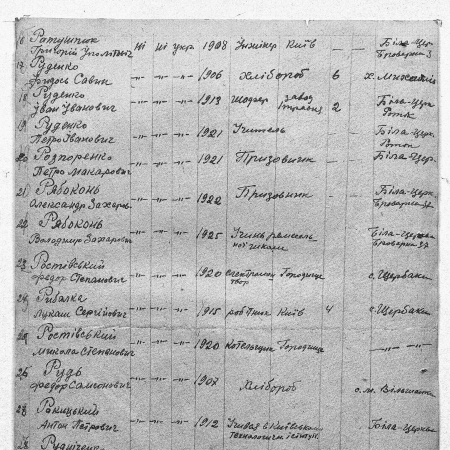 16 Ратушник
Григорій Іполитович Ні Ні укр 1908 Інжінер Київ — — Біла-Цер.
Броварна 3
17 Руденко
Федось Савич —"— —"— —"— 1906 Хлібороб 6
18 Руденко
Іван Іванович —"— —"— —"— 1913 Шофер завод 2 Біла-Церк
Роток
19 Руденко
Петро Іванович —"— —"— —"— 1921 Учитель — Біла-Церк.
Роток
20 Розпоренко
Петро Макарович —"— —"— —"— 1921 Призовник — Біла-Цер.
21 Рябоконь
Олександр Захаров. —"— —"— —"— 1922 Призовник — Біла-Церк.
Броварна 37
22 Рябоконь
Володимир Захарович —"— —"— —"— 1925 Учинь ремесль
ної школи Біла-Церква
Броварна 37
23 Ростівський
Федор Степанович —"— —"— —"— 1920 Городище с. Щербаки
24 Рибалка
Лукаш Сергійович —"— —"— —"— 1915 робітник Київ 4 с. Щербаки
25 Ростівський
Микола Степанович —"— —"— —"— 1920 котельщик Городище —"—
26 Рудь
Федор Самсонович —"— —"— —"— 1907 Хлібороб о.м. Вільшанка
28 Ракицький
Антон Петрович —"— —"— —"— 1912 Учився в Київськом
Технологичн. інституті. Біла-Церква